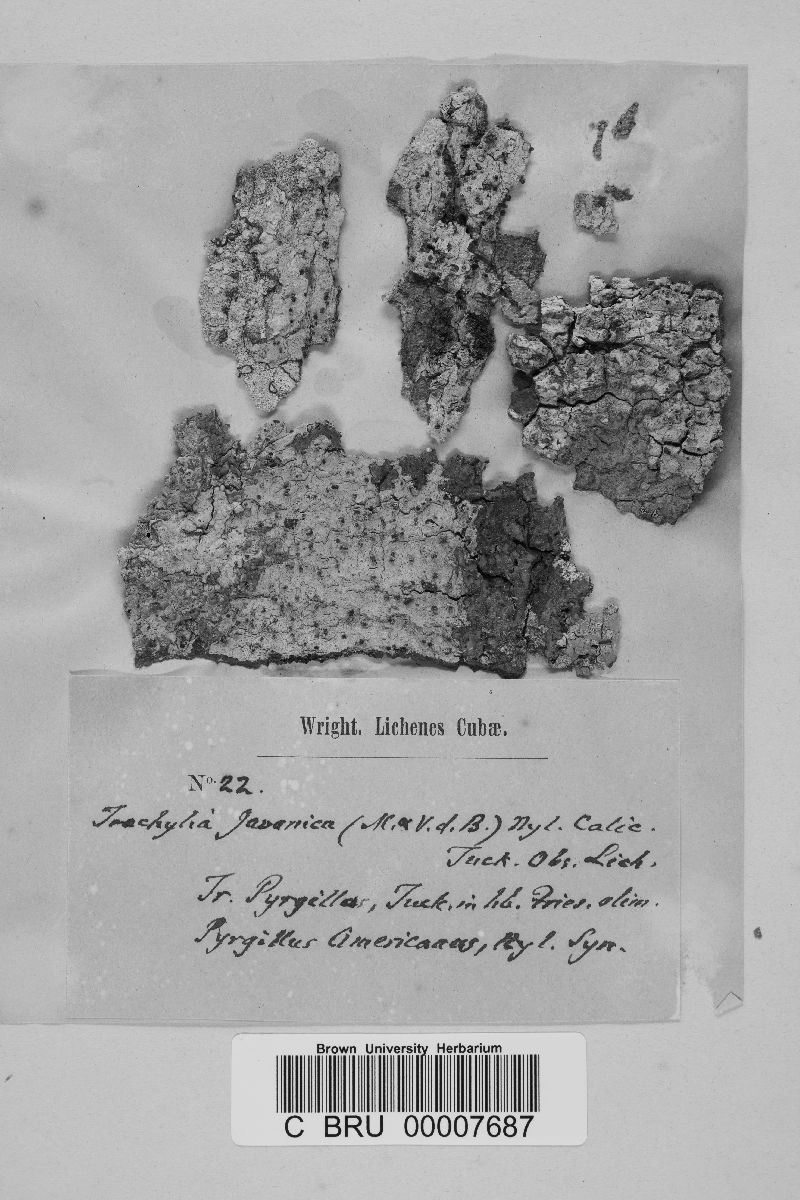 Wright. Lichenes Cubæ.
No. 22.
Trachylia Javanica (M. & V. d. B.) Nyl. Calic.
Tuck. Obs. Lich.
Tr. Pyrgillus, Tuck. in hb. Fries. olim.
Pyrgillus Americanus, Nyl. Syn.
Brown University Herbarium
C BRU 00007687